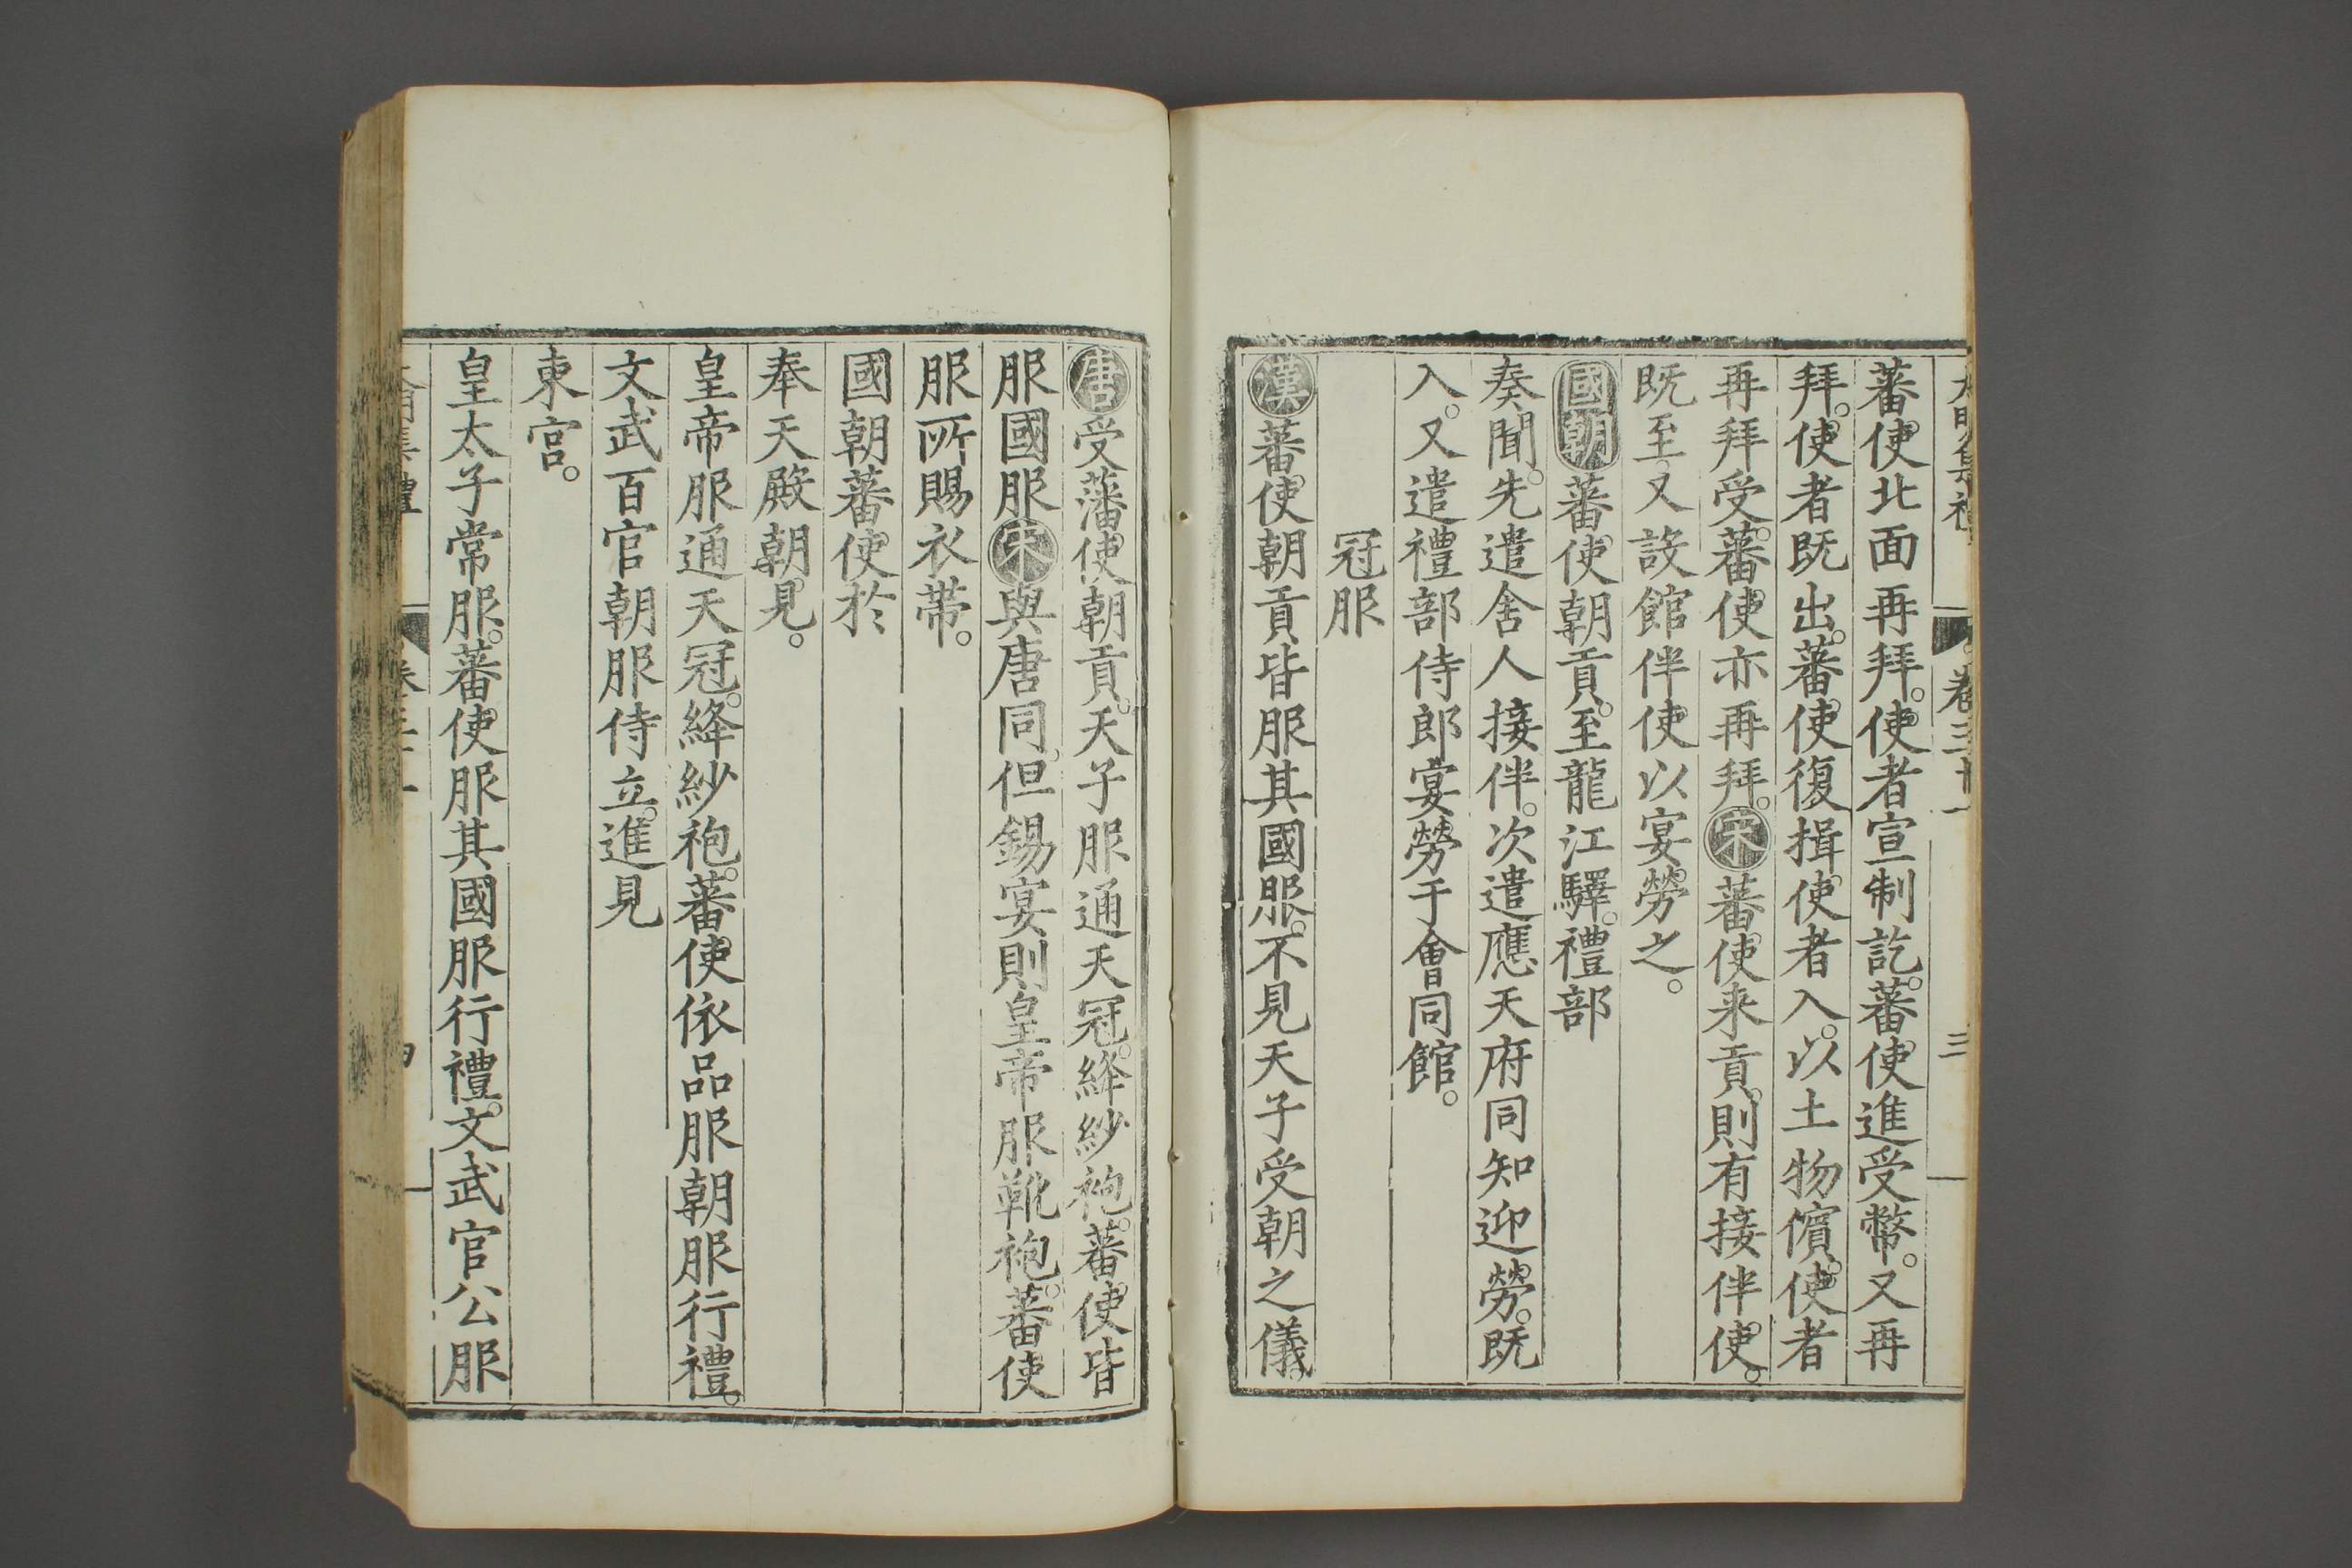 蕃使北面再拜。使者宣制訖。蕃使進受幣。又再
拜。使者既出。蕃使復揖使者入。以土物儐。使者
再拜受。蕃使亦再拜。宋蕃使来貢。則有接伴使。
既至。又設館伴使以宴勞之。
國朝蕃使朝貢。至龍江驛。禮部
奏聞。先遣舍人接伴。次遣應天府同知迎勞。既
入。又遣禮部侍郎宴勞于會同館。
冠服
漢蕃使朝貢皆服其國服。不見天子受朝之儀。
唐受藩使朝貢。天子服通天冠。絳紗袍。蕃使皆
服國服。宋與唐同。但錫宴則皇帝服靴袍。蕃使
服所賜衣帶。
國朝蕃使於
奉天殿朝見。
皇帝服通天冠。絳紗袍。蕃使依品服朝服行禮。
文武百官朝服侍立。進見
東宮。
皇太子常服。蕃使服其國服行禮。文武官公服